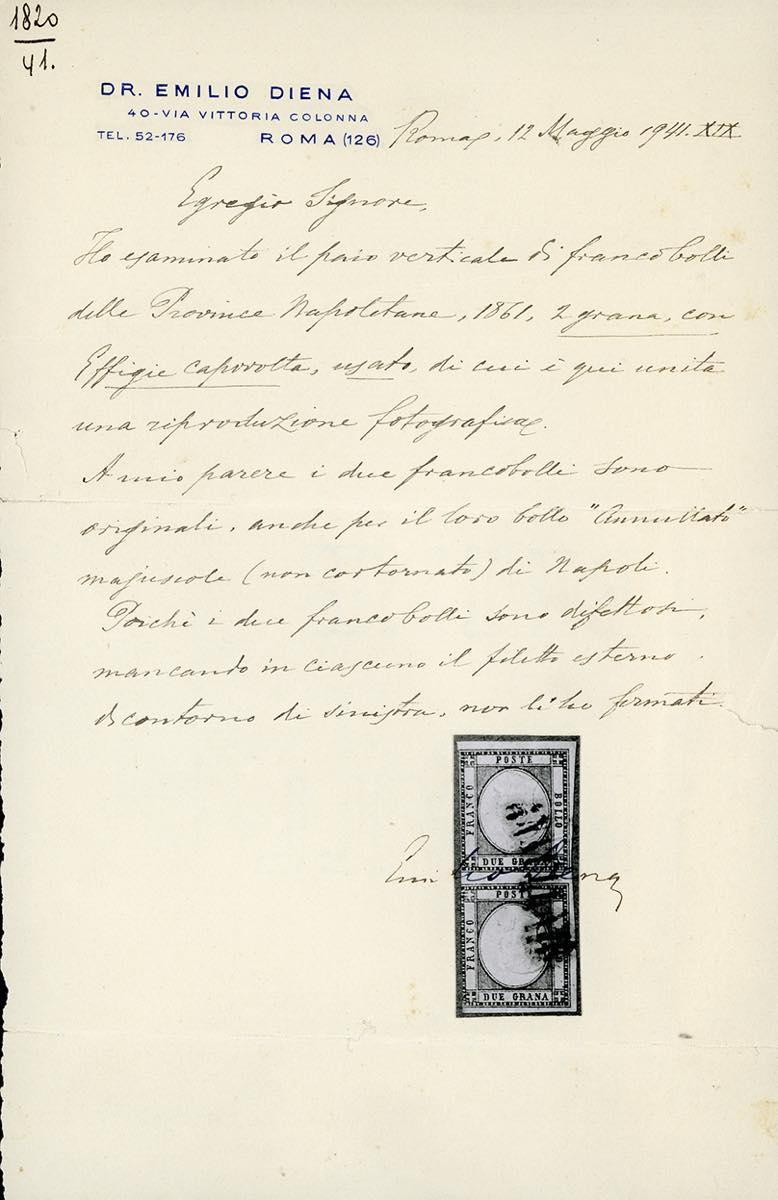 1820
41.
DR. EMILIO DIENA
40-VIA VITTORIA COLONNA
TEL. 52-176 ROMA (126)
Roma, 12 Maggio 1941. XIX
Egregio Signore,
Ho esaminato il paio verticale di francobolli
delle Province Napoletane, 1861, 2 grana, con
Effigie capovolta, usato, di cui è qui unita
una riproduzione fotografica.
A mio parere i due francobolli sono
originali, anche per il loro bollo "Annullato"
majuscole (non contornato) di Napoli.
Poichè i due francobolli sono difettosi,
mancando in ciascuno il filetto esterno
di contorno di sinistra, non li ho firmati.
POSTE
FRANCO
BOLLO
DUE GRANA
Emilio Diena
POSTE
FRANCO
DUE GRANA